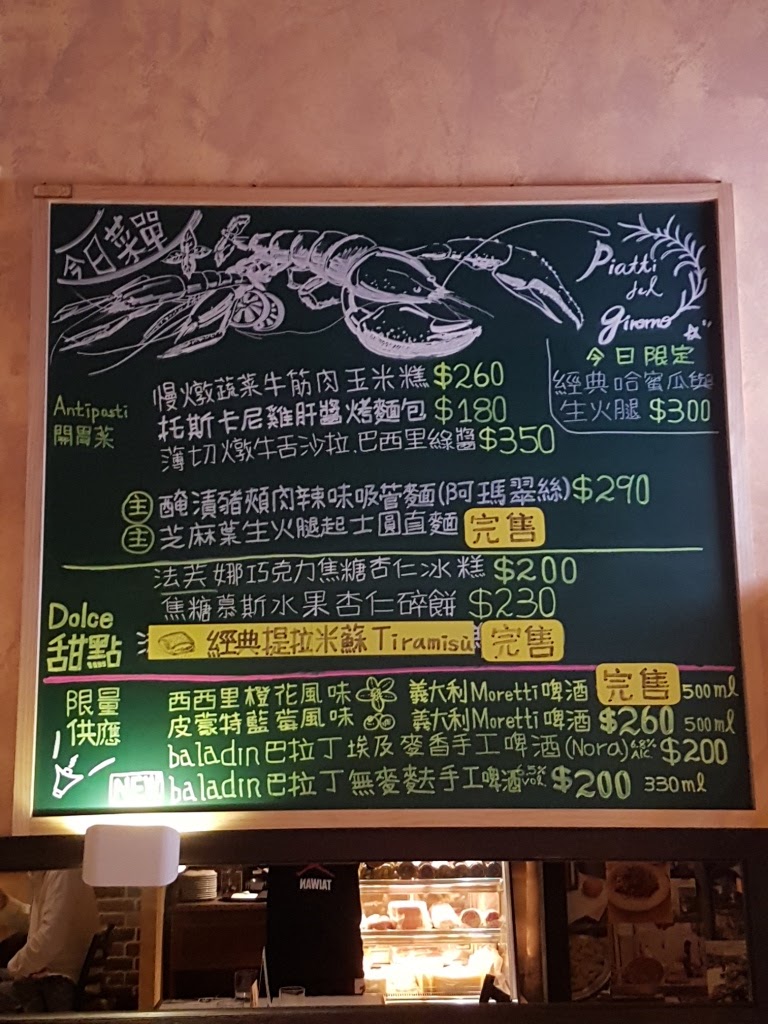 今日菜單
Piatti
del
giorno
今日限定
經典哈蜜瓜與
生火腿 $300
Antipasti
開胃菜
慢燉蔬菜牛筋肉玉米糕 $260
托斯卡尼雞肝醬烤麵包 $180
薄切燉牛舌沙拉.巴西里綠醬 $350
主 醃漬豬頰肉辣味吸管麵(阿瑪翠絲) $290
主 芝麻葉生火腿起士圓直麵 完售
Dolce
甜點
法芙娜巧克力焦糖杏仁冰糕 $200
焦糖慕斯水果杏仁碎餅 $230
經典提拉米蘇 Tiramisù 完售
限量
供應
西西里橙花風味 義大利Moretti啤酒 完售 500ml
皮蒙特藍莓風味 義大利Moretti啤酒 $260 500ml
baladin巴拉丁埃及麥香手工啤酒(Nora) 6.8% ALC. $200
NEW baladin巴拉丁無麥麩手工啤酒 $200 330ml